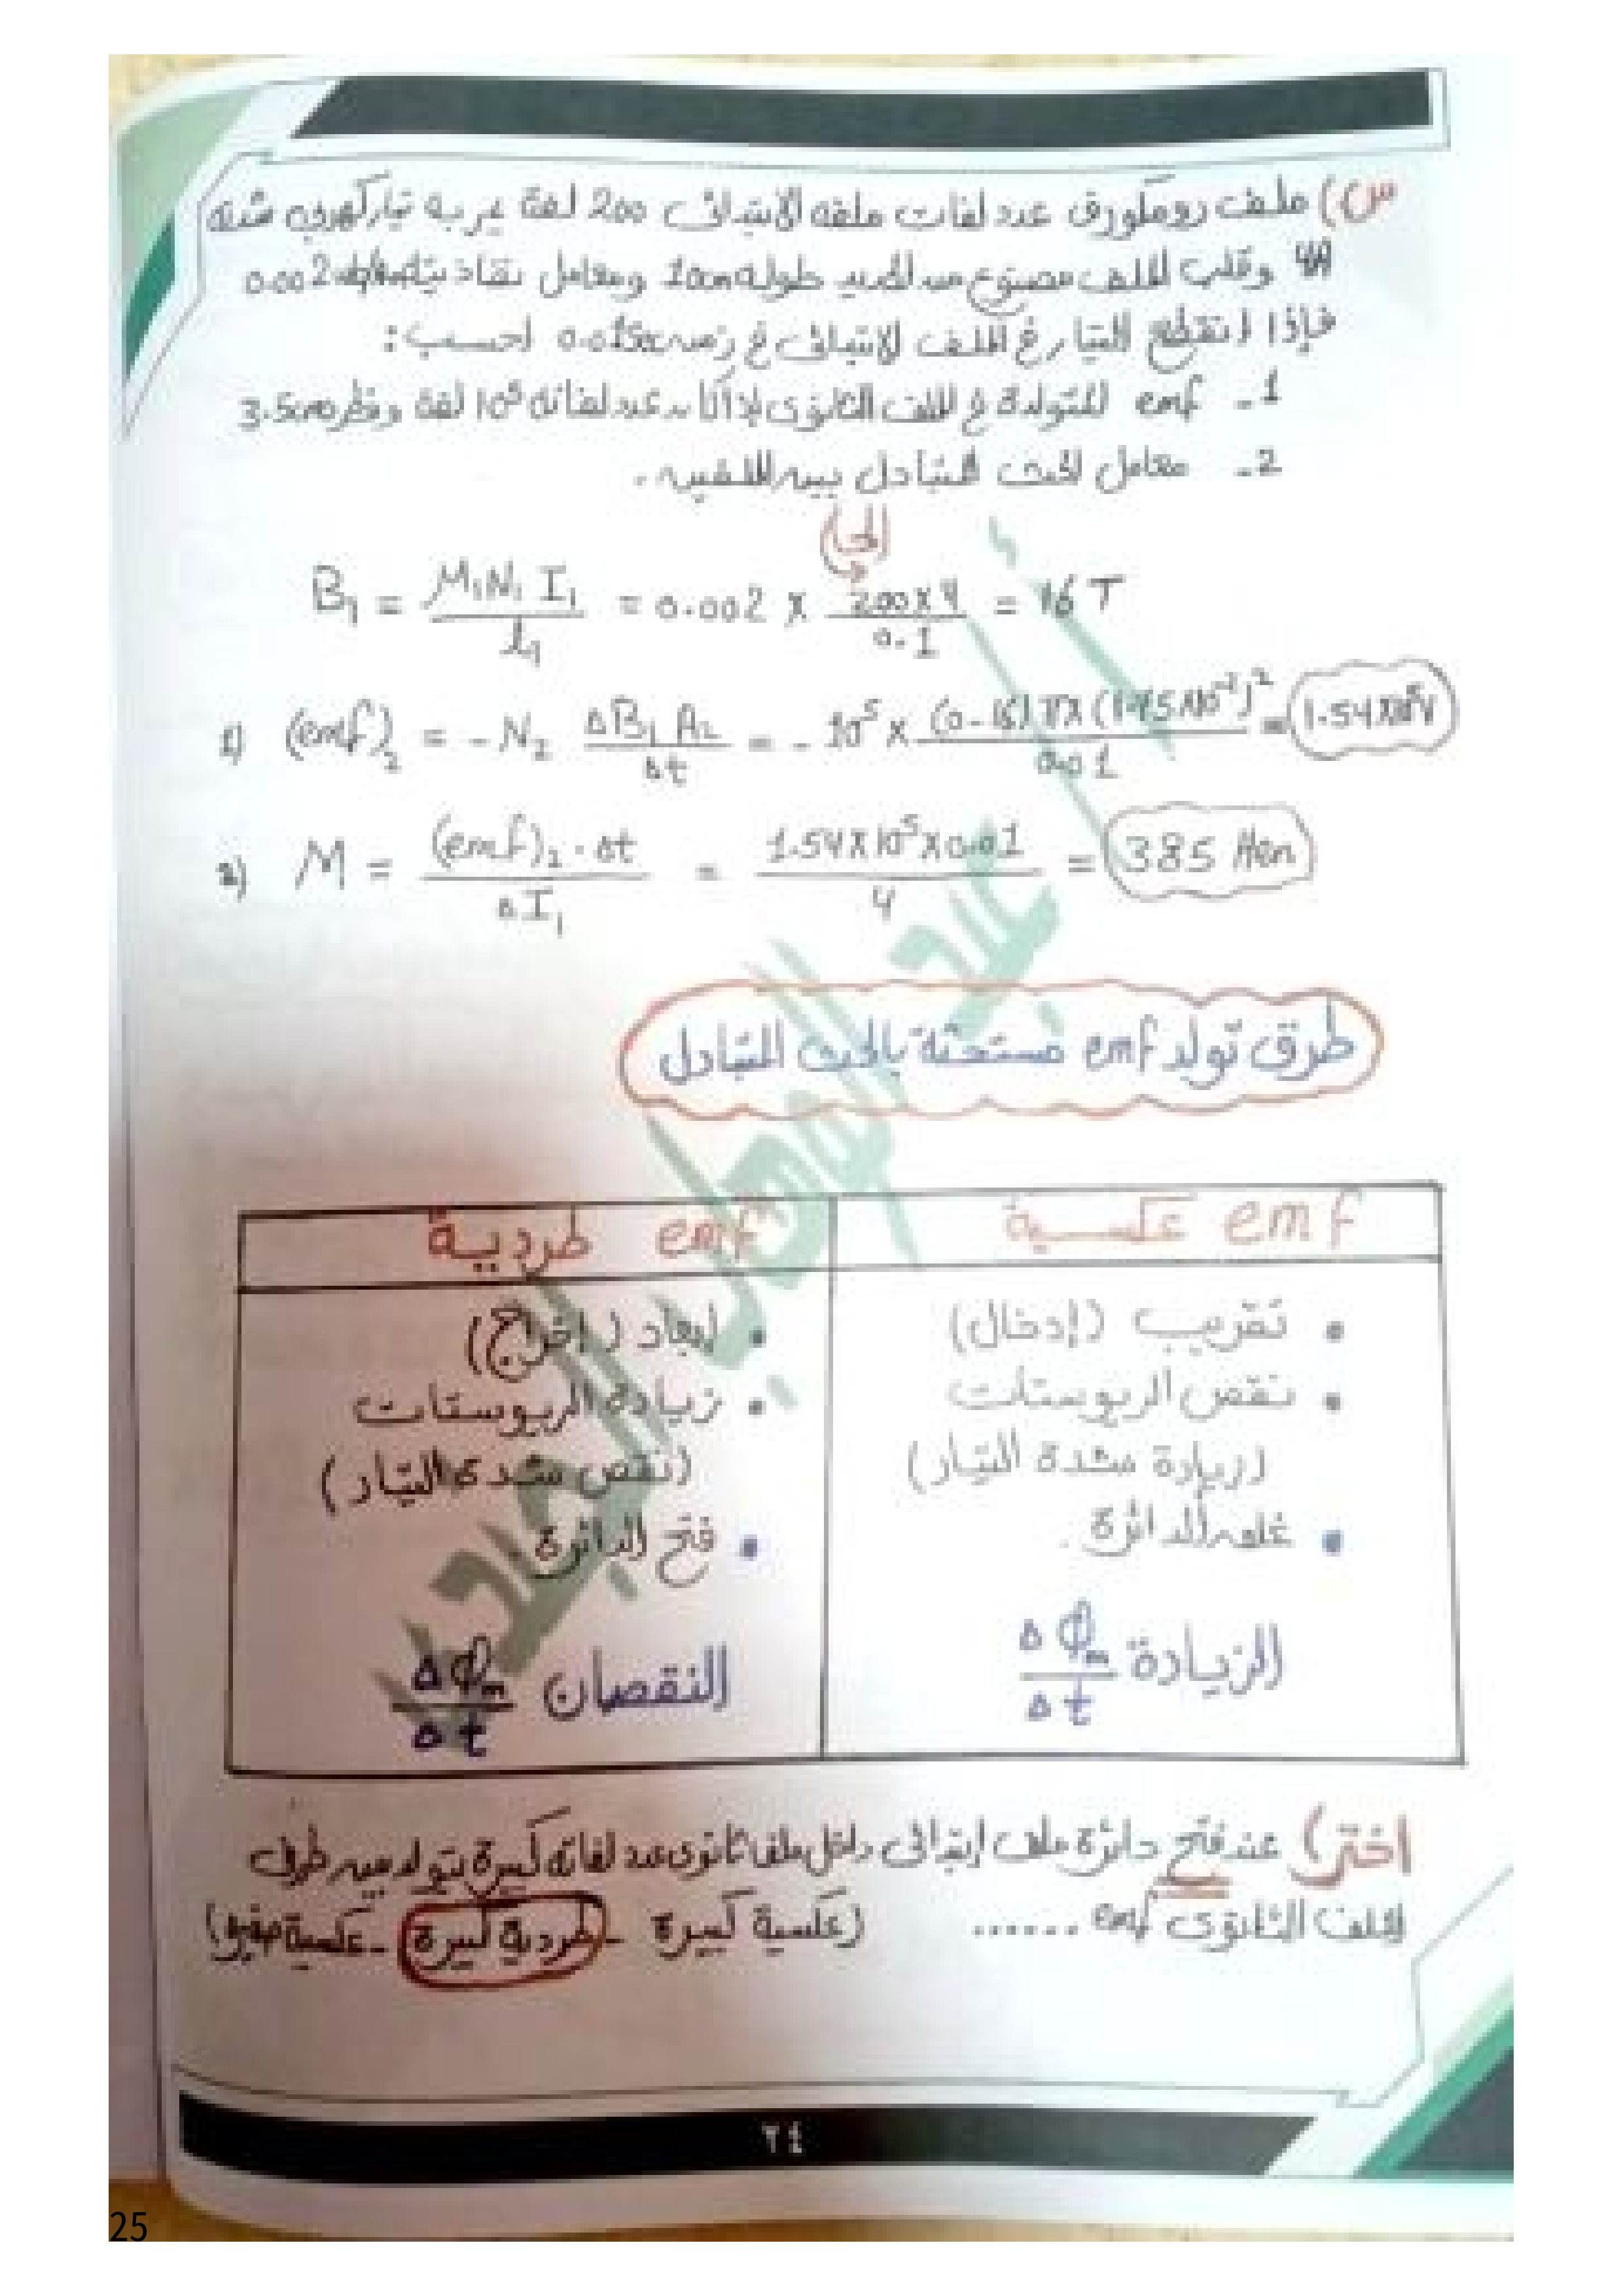 س) ملف رومكورف عدد لفات ملفه الابتدائى 200 لفة يمر به تيار كهربى شدته
4A وقلب الملف مصنوع من الحديد طوله 10cm ومعامل نفاذيته 0.002
فإذا انقطع التيار فى الملف الابتدائى فى زمن 0.01sec احسب :
1 - emf المتولدة فى الملف الثانوى إذا كان عدد لفاته 10⁵ لفة وقطره 3.5cm
2 - معامل الحث المتبادل بين الملفين .
B₁ = μ₁N₁ I₁ / l₁ = 0.002 × 200×4 / 0.1 = 16 T
1) (emf)₂ = - N₂ ΔB₁ A₂ / Δt = - 10⁵ × (0-16) π × (1.75×10⁻²)² / 0.01 = 1.54×10⁵V
2) M = (emf)₂ . Δt / ΔI₁ = 1.54×10⁵×0.01 / 4 = 385 Hen
طرق تولد emf مستحثة بالحث المتبادل
emf عكسية
emf طردية
• تقريب (إدخال)
• ابعاد (إخراج)
• نقص الريوستات
• زيادة الريوستات
(زيادة شدة التيار)
(نقص شدة التيار)
• غلق الدائرة .
• فتح الدائرة .
الزيادة ΔΦm / Δt
النقصان ΔΦm / Δt
اختر) عند فتح دائرة ملف إبتدائى داخل ملف ثانوى عدد لفاته كبيرة يتولد بين طرفى
الملف الثانوى emf ...... (عكسية كبيرة - طردية كبيرة - عكسية صغيرة)
٢٤
25